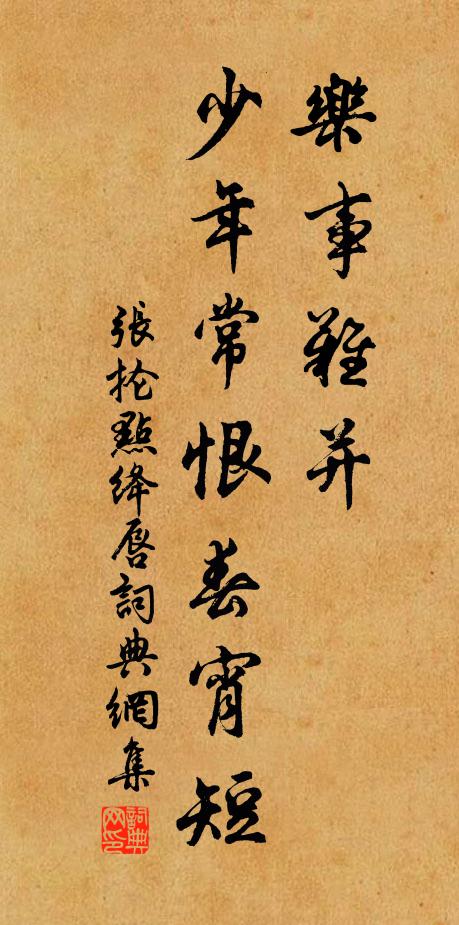 樂事難并
少年常恨春宵短
張掄點絳唇詞典網集
詞典網印